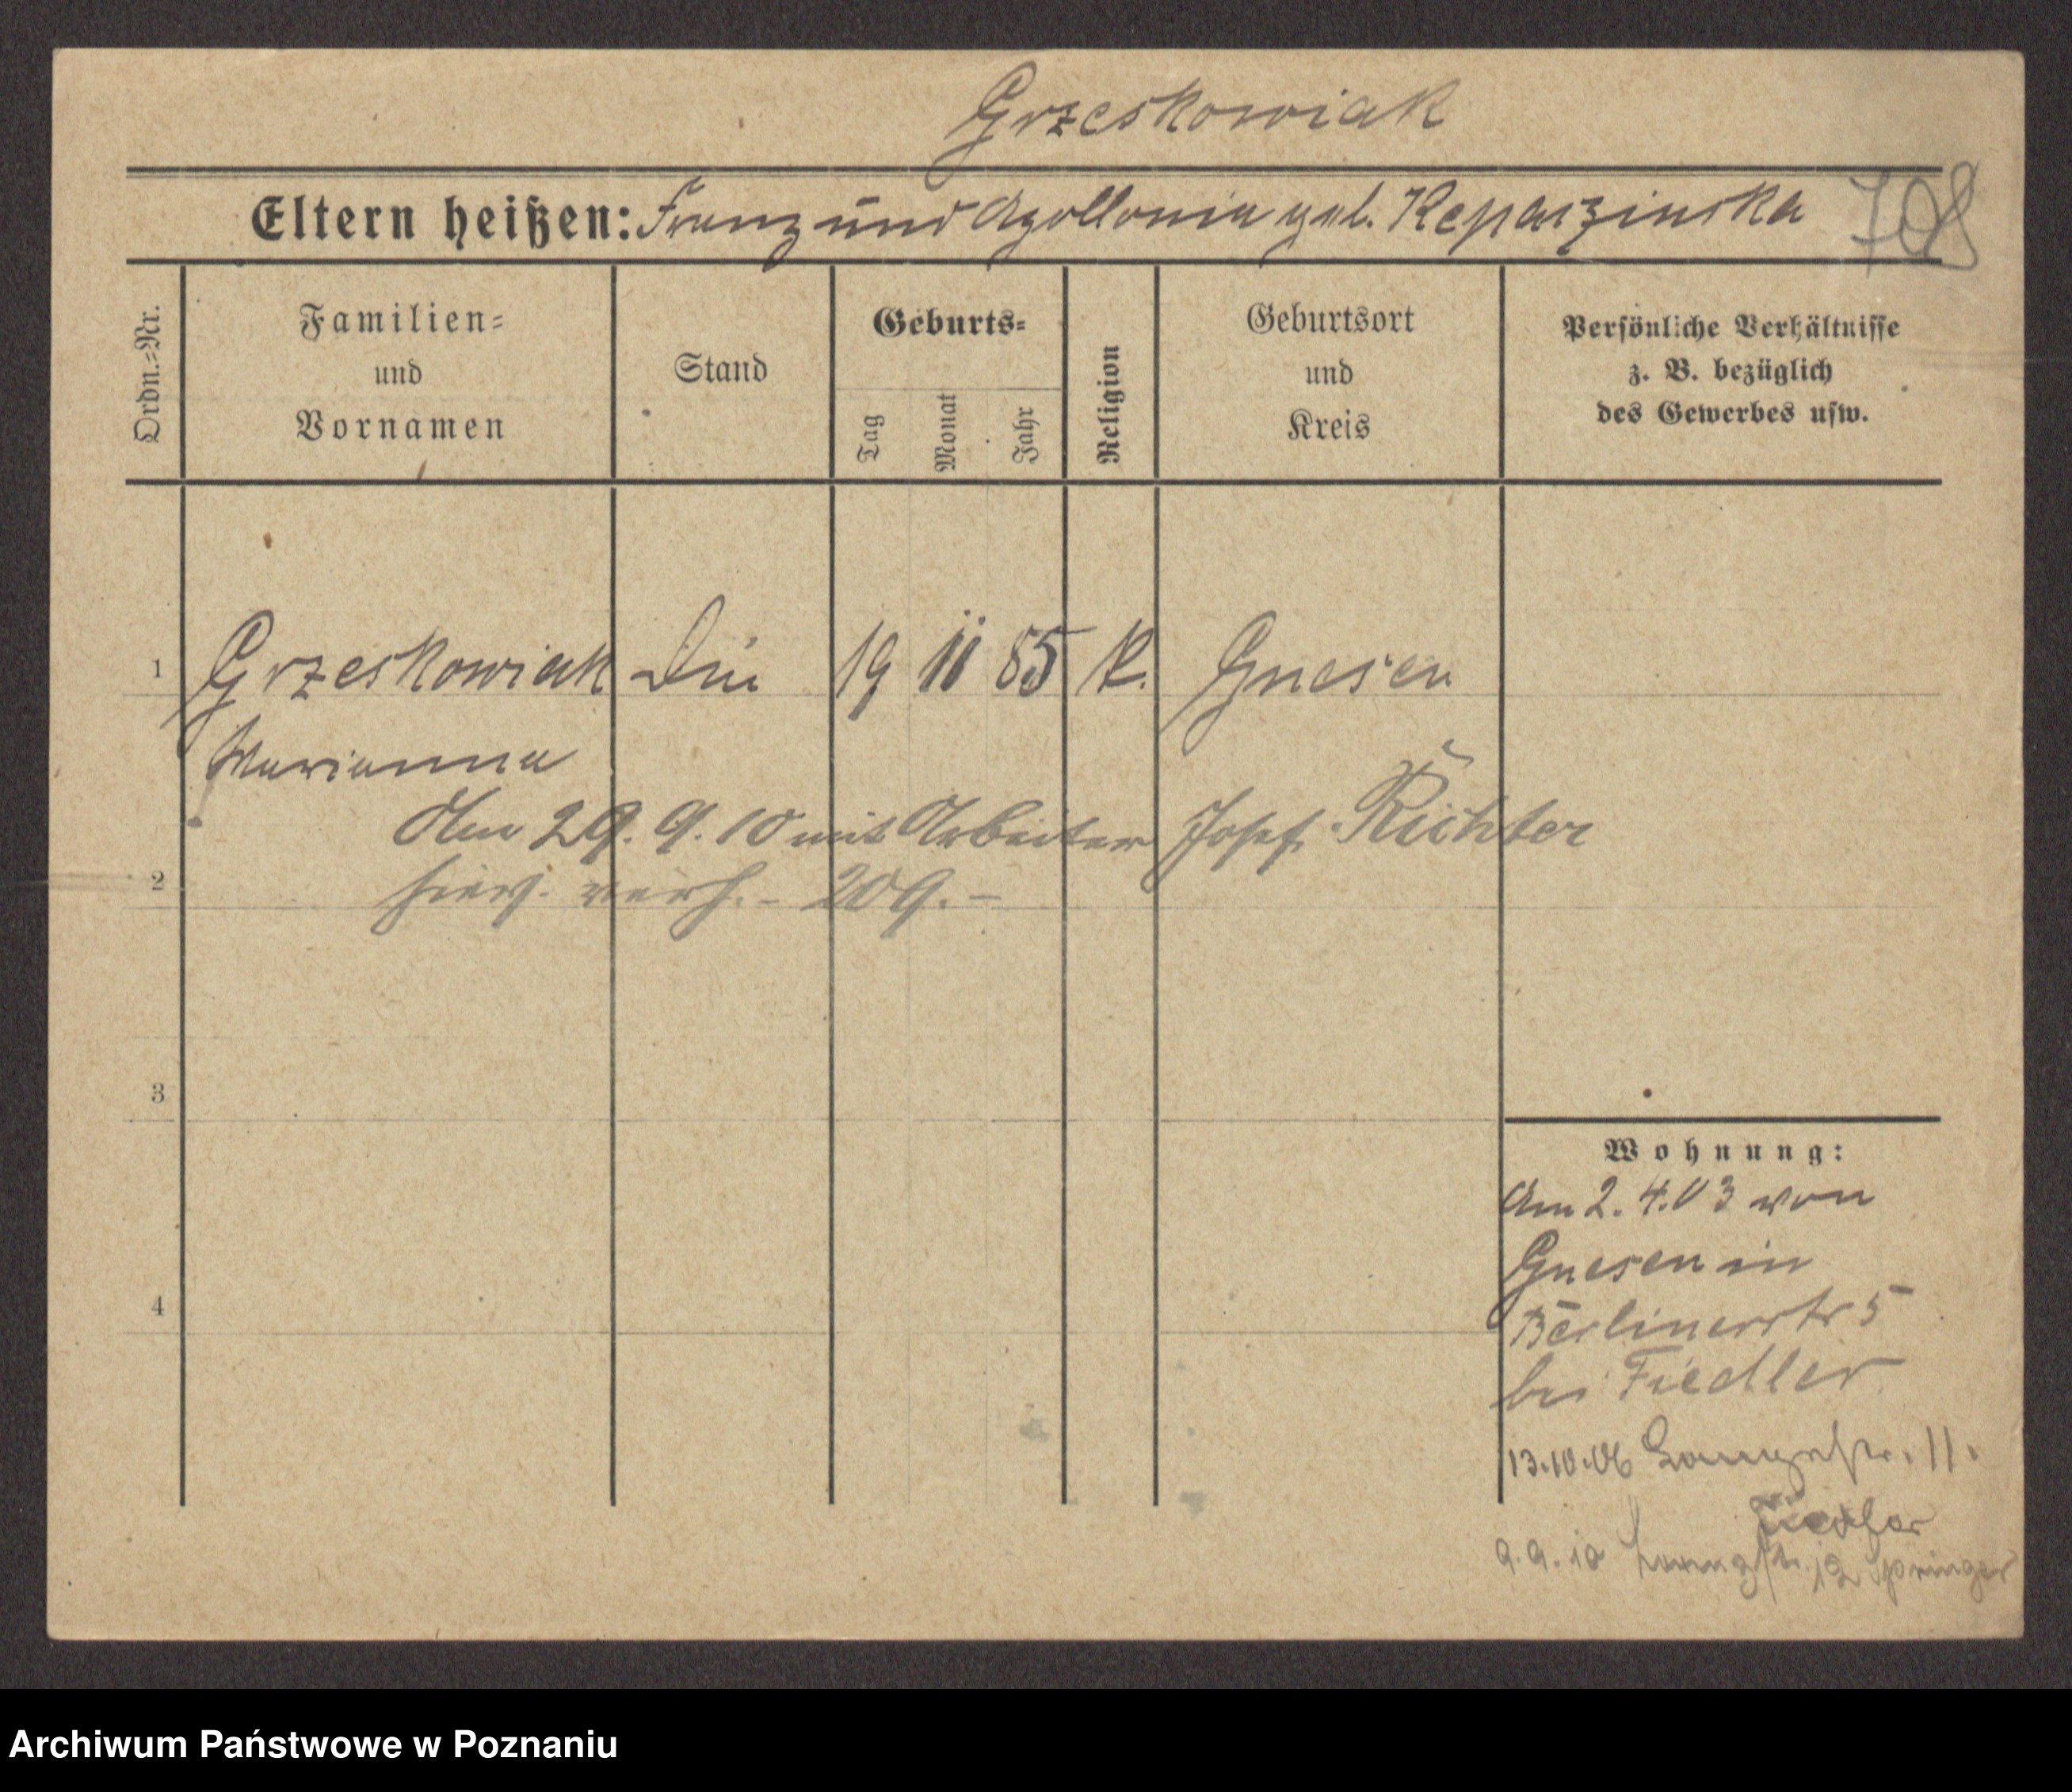 Grzeskowiak
Eltern heißen: Franz und Apollonia geb. Keparzinska
708
Ordn.=Nr.
Familien=
und
Vornamen
Stand
Geburts=
Tag
Monat
Jahr
Religion
Geburtsort
und
Kreis
Persönliche Verhältnisse
z. B. bezüglich
des Gewerbes usw.
1 Grzeskowiak 19 11 85 K. Gnesen
Marianna
Am 29. 9. 10 mit Arbeiter Josef Richter
2
hier verh. – 209. –
3
4
Wohnung:
Am 2. 4. 03 von
Gnesen in
Berlinerstr 5
bei Fiedler
13.10.06 Langestr. 11.
Fiedler
9.9.10 Langestr. 12 Springer
Archiwum Państwowe w Poznaniu